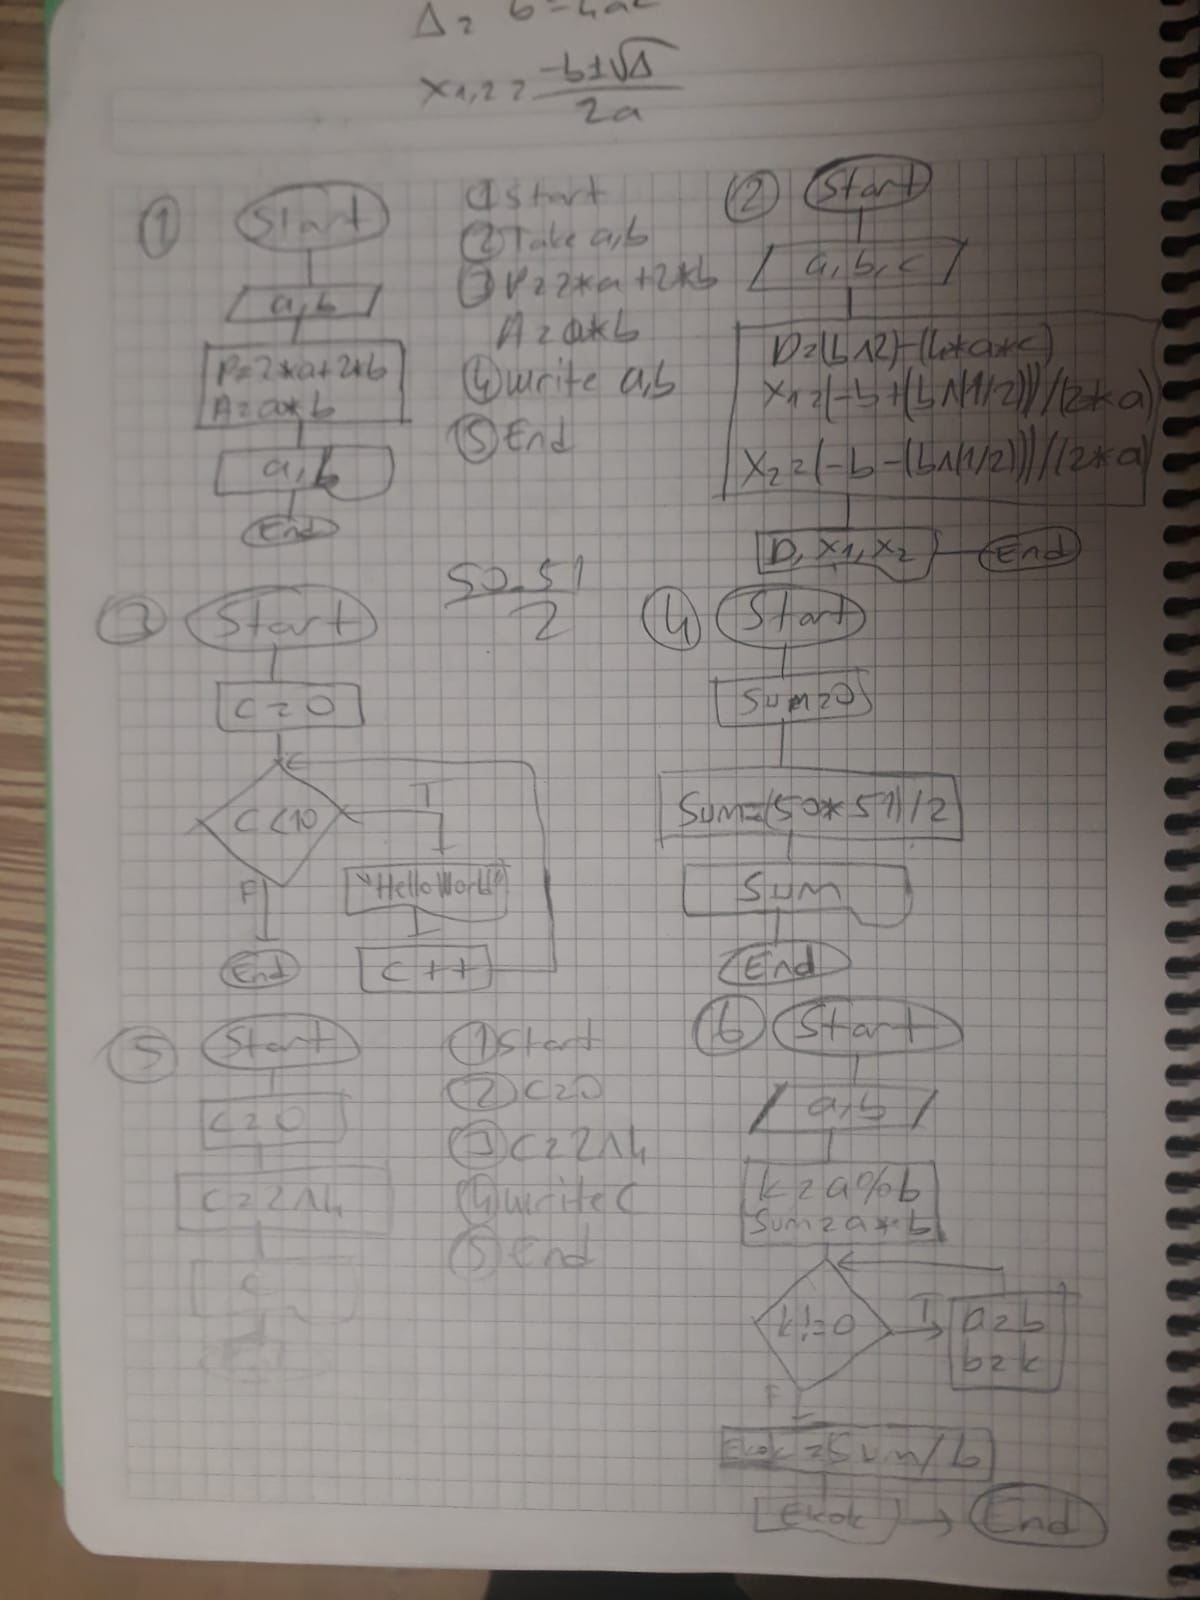 Δ = b² - 4ac
x1,2 = -b±√Δ
2a
①
Start
a,b
P=2*a+2*b
A=a*b
a,b
End
① Start
② Take a,b
③ P=2*a+2*b
A=a*b
④ Write a,b
⑤ End
②
Start
a,b,c
D=(b^2)-(4*a*c)
X1=(-b+(b^(1/2)))/(2*a)
X2=(-b-(b^(1/2)))/(2*a)
D, X1, X2
End
③
Start
C=0
C<10
T
"Hello World"
C++
F
End
50.51
2
④
Start
Sum=0
Sum=(50*51)/2
Sum
End
⑤
Start
C=0
C=2^4
C
① Start
② C=0
③ C=2^4
④ Write C
⑤ End
⑥
Start
a,b
k=a%b
Sum=a*b
k!=0
T
a=b
b=k
F
Ekok=Sum/b
Ekok
End